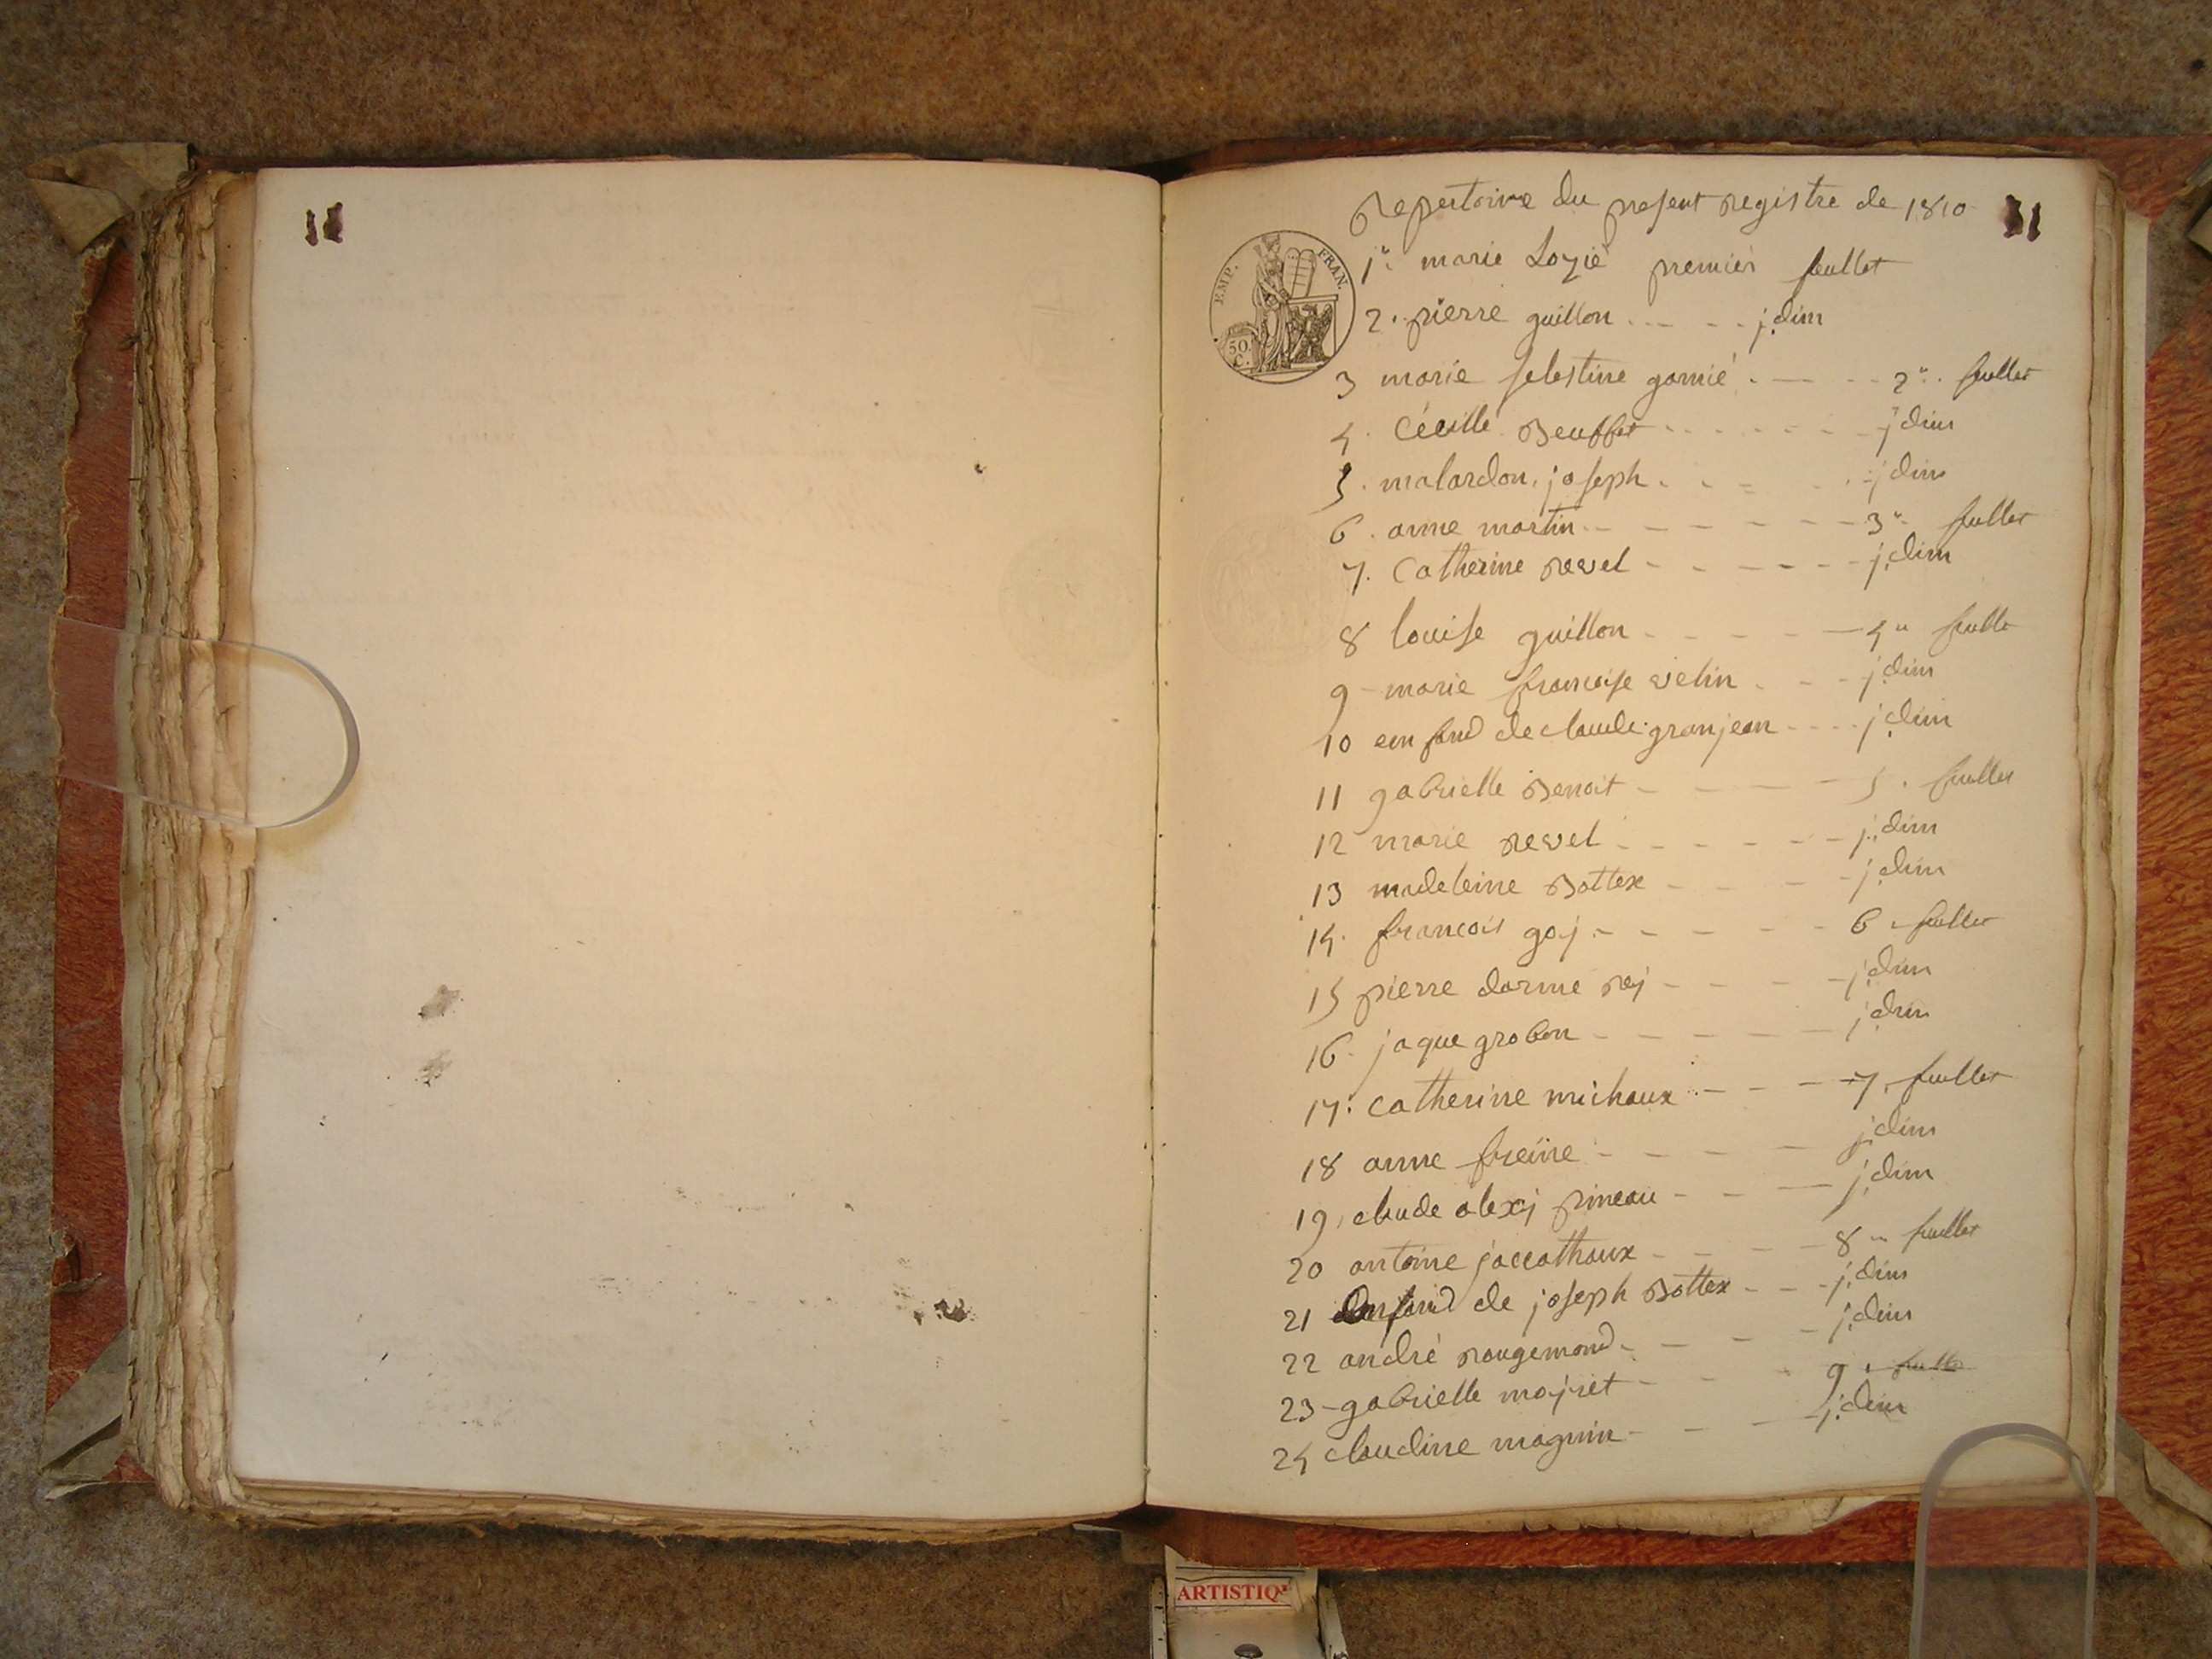 Repertoire du present registre de 1810
EMP. FRAN.
50. C.
1er marie Lozié premier feullet
2. pierre guillon j.dim
3 marie selestine garnié 2e. feullet
4. Cécille Beuffet jdim
5. malardon, joseph jdim
6. anne martin 3e feullet
7. Catherine revel j.dim
8 louise guillon 4e feulle
9 marie francoise velin j.dim
10 enfand de claude granjean j.dim
11 gabrielle Benoit 5. feullet
12 marie revel j.dim
13 madeleine Bottex j.dim
14. francois goj 6 feullet
15 pierre darme rej j.dim
16. jaque grobon j.dim
17. Catherine michaux 7. feullet
18 anne freïne j.dim
19, claude alexj pineau j.dim
20 antoine jaccathaux 8e feullet
21 enfand de joseph Bottex j.dim
22 andré rougemond j.dim
23 gabrielle majret 9. feulle
24 claudine magnin j.dim
ARTISTIQ